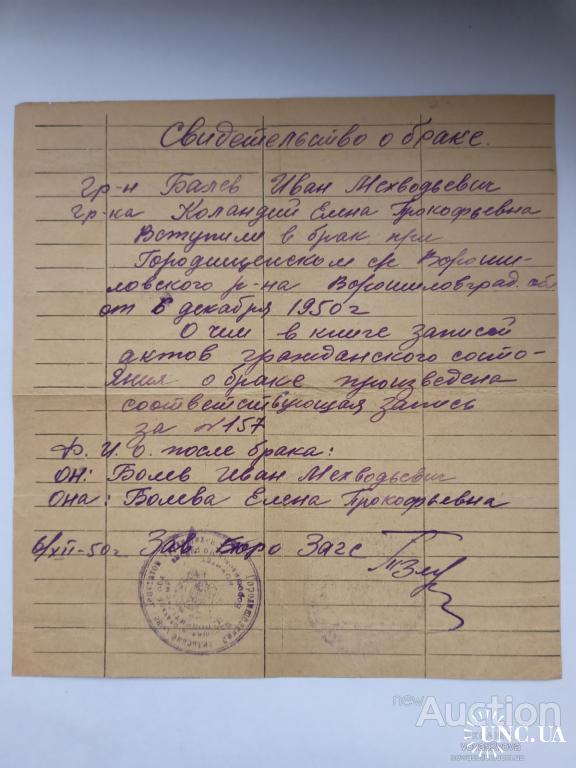 Свидетельство о браке.
гр-н Балев Иван Мехводьевич
гр-ка Коландий Елена Прокофьевна
Вступили в брак при
Городищенском с/с Вороши-
ловского р-на Ворошиловград. обл
от 6 декабря 1950г
О чем в книге записей
актов гражданского состо-
яния о браке произведена
соответствующая запись
за №157
Ф. И. О. после брака:
он: Болев Иван Мехводьевич
она: Болева Елена Прокофьевна
6/XII-50г Зав Бюро Загс
new Auction
UNC.UA